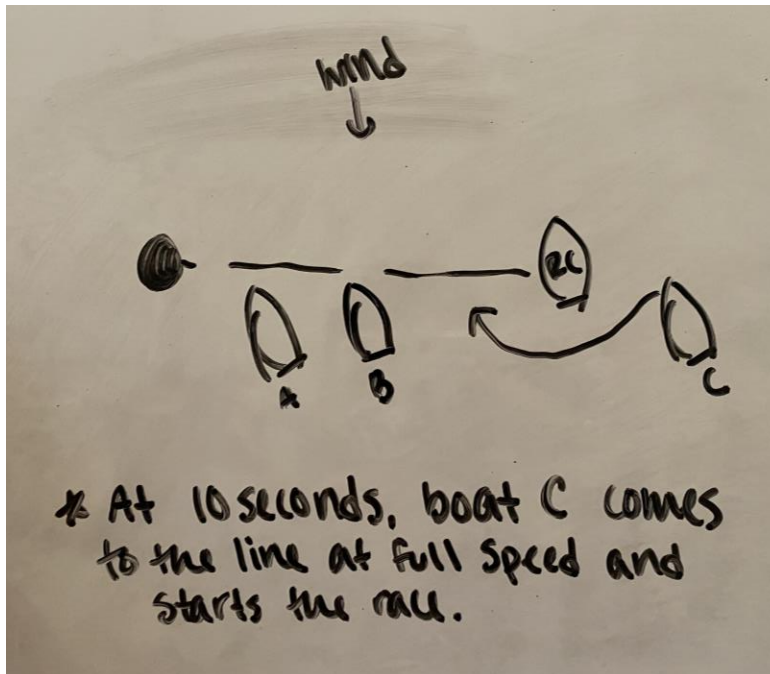 wind
RC
A
B
C
* At 10 seconds, boat C comes
to the line at full speed and
starts the race.